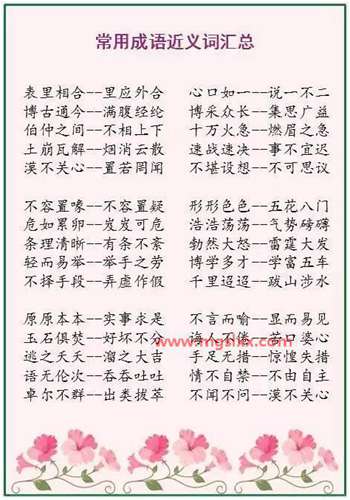 常用成语近义词汇总
表里相合--里应外合 心口如一--说一不二
博古通今--满腹经纶 博采众长--集思广益
伯仲之间--不相上下 十万火急--燃眉之急
土崩瓦解--烟消云散 速战速决--事不宜迟
漠不关心--置若罔闻 不堪设想--不可思议
不容置喙--不容置疑 形形色色--五花八门
危如累卵--岌岌可危 浩浩荡荡--气势磅礴
条理清晰--有条不紊 勃然大怒--雷霆大发
轻而易举--举手之劳 博学多才--学富五车
不择手段--弄虚作假 千里迢迢--跋山涉水
原原本本--实事求是 不言而喻--显而易见
玉石俱焚--好坏不分 诲人不倦--苦口婆心
www.mgslix.com
逃之夭夭--溜之大吉 手足无措--惊惶失措
语无伦次--吞吞吐吐 情不自禁--不由自主
卓尔不群--出类拔萃 不闻不问--漠不关心